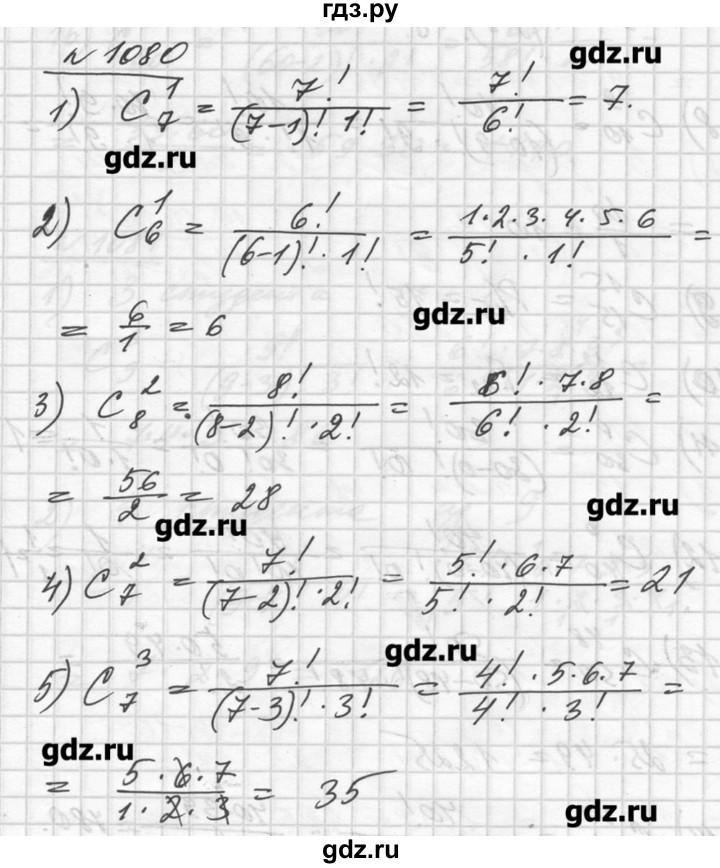 гдз.ру
№ 1080
gdz.ru
1) C₇¹ = 7!/((7-1)! 1!) = 7!/6! = 7.
gdz.ru
2) C₆¹ = 6!/((6-1)! · 1!) = (1·2·3·4·5·6)/(5! · 1!) =
= 6/1 = 6
gdz.ru
3) C₈² = 8!/((8-2)! · 2!) = (6! · 7·8)/(6! · 2!) =
= 56/2 = 28
gdz.ru
gdz.ru
4) C₇² = 7!/((7-2)! · 2!) = (5! · 6·7)/(5! · 2!) = 21
gdz.ru
5) C₇³ = 7!/((7-3)! · 3!) = (4! · 5·6·7)/(4! · 3!) =
gdz.ru
= (5·6·7)/(1·2·3) = 35
gdz.ru
gdz.ru